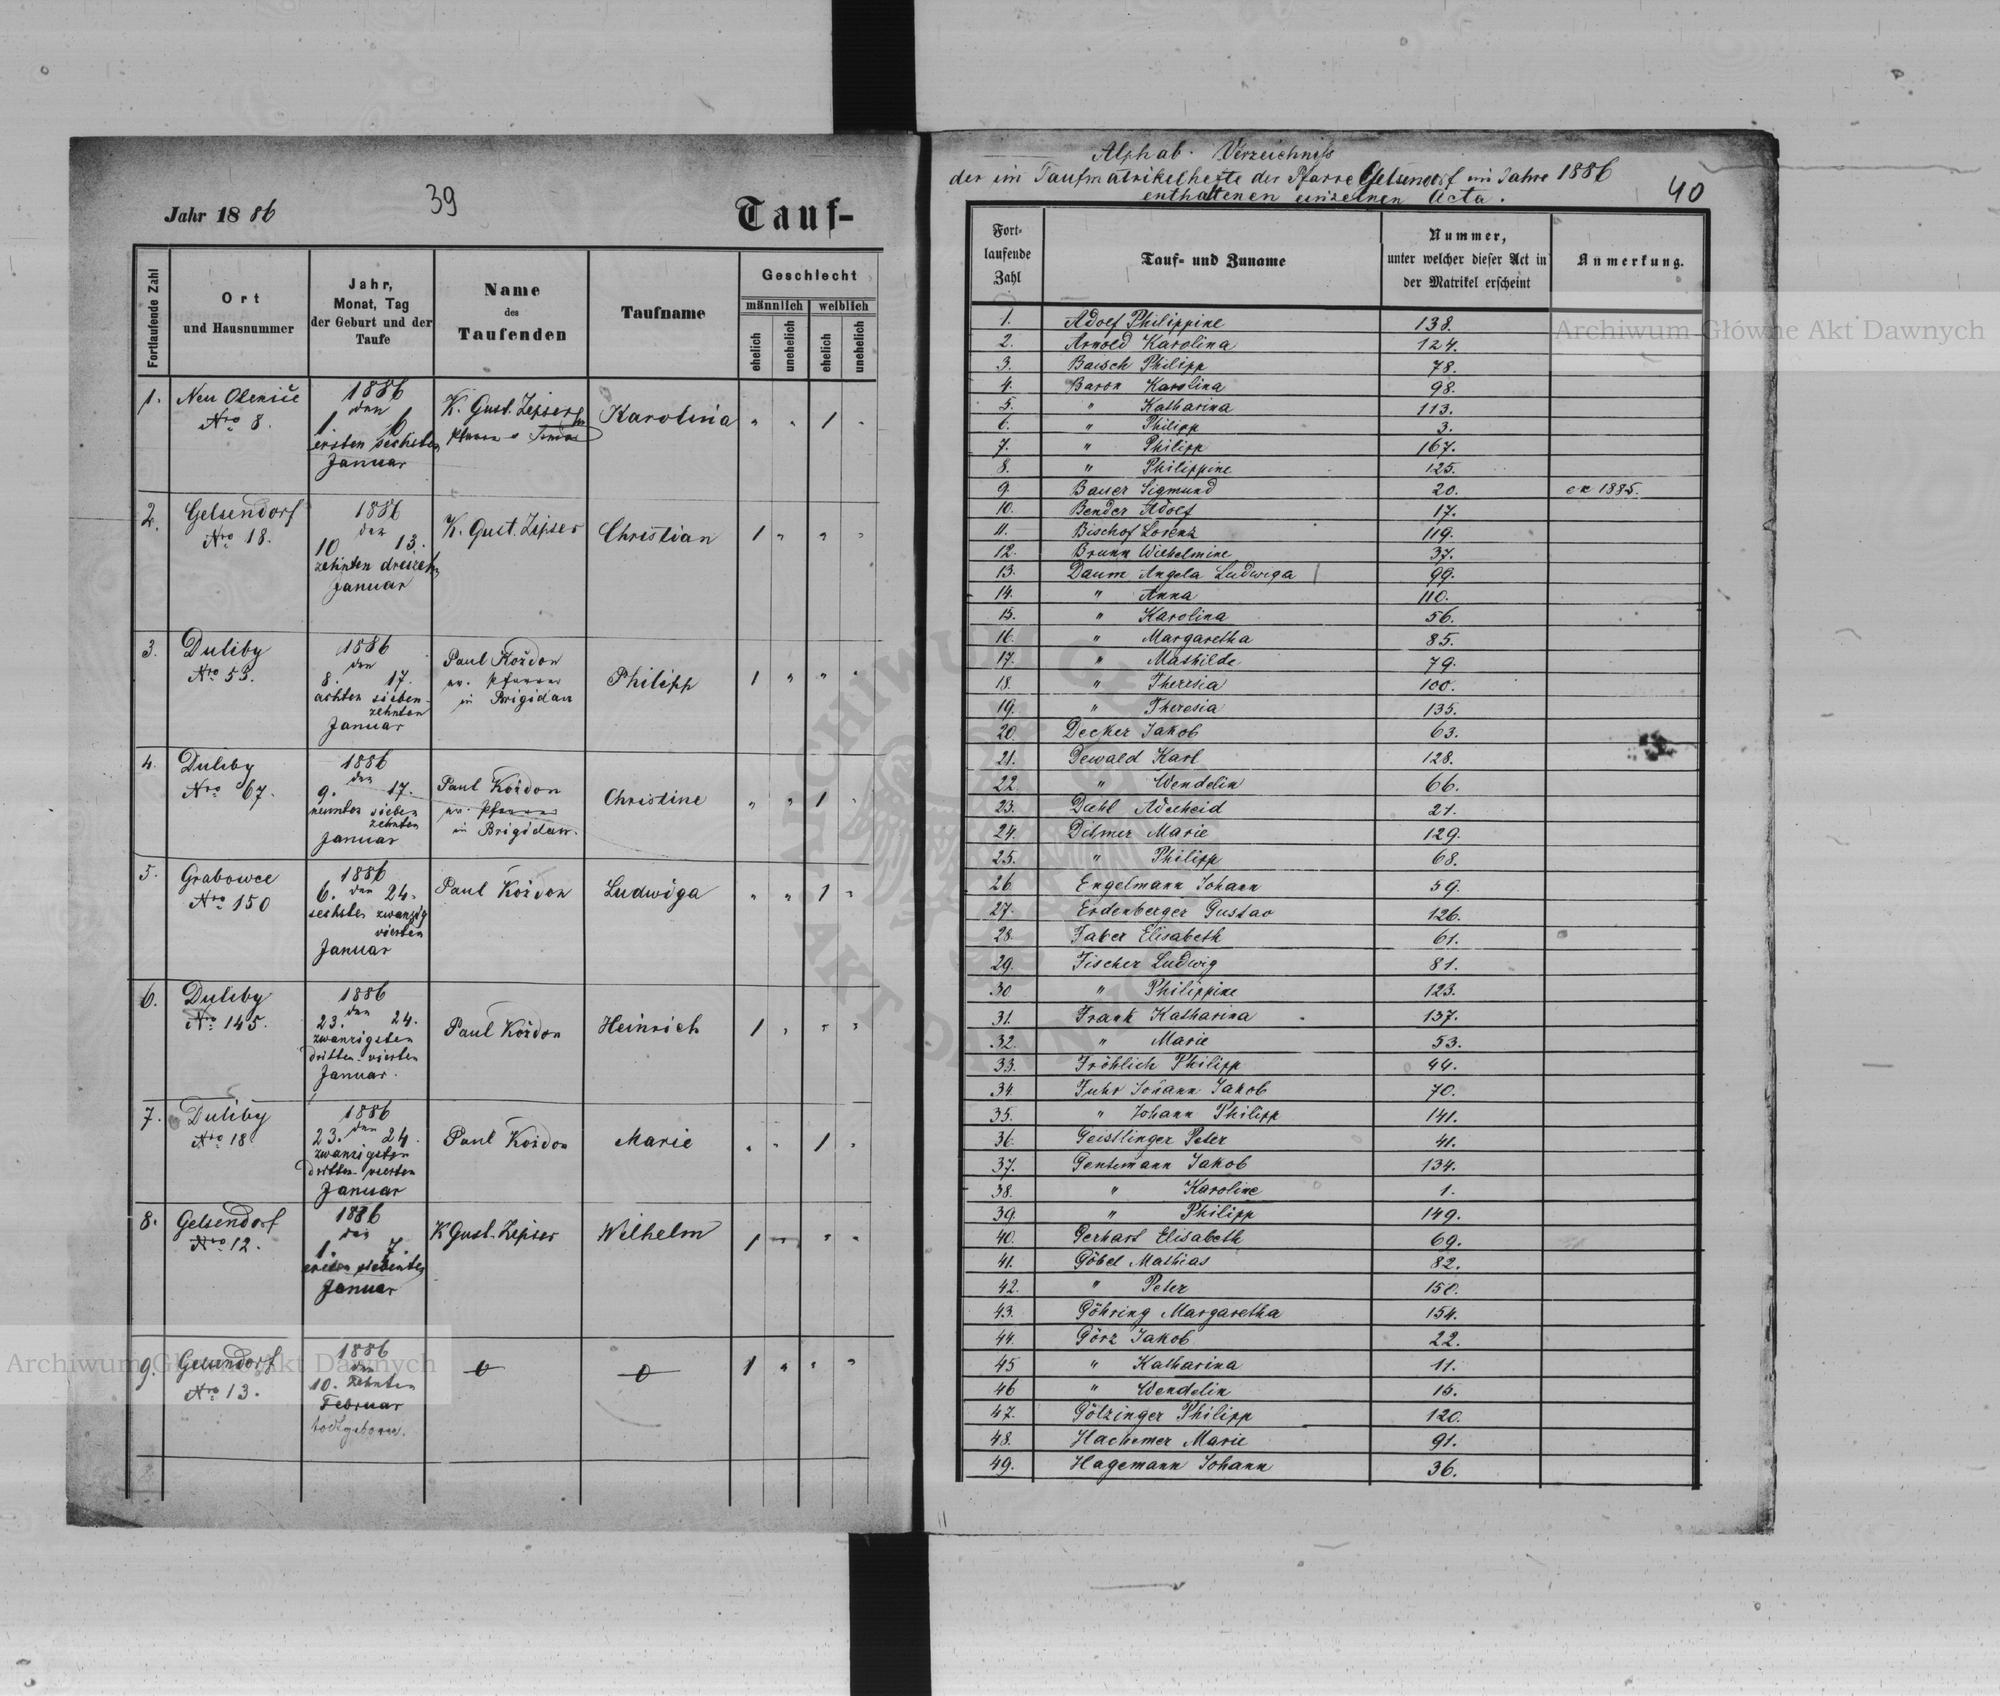 39
Jahr 1886
Tauf-
Fortlaufende Zahl
Ort
und Hausnummer
Jahr,
Monat, Tag
der Geburt und der
Taufe
Name
des
Taufenden
Taufname
Geschlecht
männlich weiblich
ehelich unehelich ehelich unehelich
1. Neu Oleksice
Nro 8.
1886
den
1. 6.
ersten sechsten
Januar
K. Gust. Zipser
Karolina " " 1 "
2. Gelsendorf
Nro 18.
1886
den
10 13.
zehnten dreizehn
Januar
K. Gust. Zipser
Christian 1 " " "
3. Duliby
Nro 53.
1886
den
8. 17.
achten sieben-
zehnten
Januar
Paul Kożdon
ev. Pfarrer
in Brigidau
Philipp 1 " " "
4. Duliby
Nro 67.
1886
den
9. 17.
neunten sieben
zehnten
Januar
Paul Kożdon
ev. Pfarrer
in Brigidau.
Christine " " 1 "
5. Grabowce
Nro 150
1886
6. den 24.
sechsten zwanzig
vierten
Januar
Paul Kożdon
Ludwiga " " 1 "
6. Duliby
Nro 145.
1886
den
23. 24.
zwanzigsten
dritten - vierten
Januar.
Paul Kożdon
Heinrich 1 " " "
7. Duliby
Nro 18
1886
den
23. 24.
zwanzigsten
dritten - vierten
Januar
Paul Kożdon
Marie " " 1 "
8. Gelsendorf
Nro 12.
1886
den
1. 7.
ersten siebenten
Januar
K Gust. Zipser
Wilhelm 1 " " "
9. Gelsendorf
Nro 13.
1886
den
10. zehnten
Februar
todtgeboren.
0 0 1 " " "
Alphab. Verzeichniss
der im Taufmatrikelhefte der Pfarre Gelsendorf im Jahre 1886
enthaltenen einzelnen Acta.
40
Fort-
laufende
Zahl
Tauf- und Zuname
Nummer,
unter welcher dieser Act in
der Matrikel erscheint
Anmerkung.
1. Adolf Philippine 138.
2. Arnold Karolina 124.
3. Baisch Philipp 78.
4. Baron Karolina 98.
5. " Katharina 113.
6. " Philipp 3.
7. " Philipp 167.
8. " Philippine 125.
9. Bauer Sigmund 20. ex 1885.
10. Bender Adolf 17.
11. Bischof Lorenz 119.
12. Brunn Wilhelmine 37.
13. Daum Angela Ludwiga 99.
14. " Anna 110.
15. " Karolina 56.
16. " Margaretha 85.
17. " Mathilde 79.
18. " Theresia 100.
19. " Theresia 135.
20. Decker Jakob 63.
21. Dewald Karl 128.
22. " Wendelin 66.
23. Diehl Adelheid 21.
24. Ditmer Marie 129.
25. " Philipp 68.
26 Engelmann Johann 59.
27. Erdenberger Gustav 126.
28. Faber Elisabeth 61.
29. Fischer Ludwig 81.
30 " Philippine 123.
31. Frank Katharina 137.
32. " Marie 53.
33. Fröhlich Philipp 44.
34 Fuhr Johann Jakob 70.
35. " Johann Philipp 141.
36. Geistlinger Peter 41.
37. Gentemann Jakob 134.
38. " Karoline 1.
39. " Philipp 149.
40. Gerhart Elisabeth 69.
41. Göbel Mathias 82.
42. " Peter 150.
43. Göhring Margaretha 154.
44. Görz Jakob 22.
45 " Katharina 11.
46 " Wendelin 15.
47. Götzinger Philipp 120.
48. Hachemer Marie 91.
49. Hagemann Johann 36.
Archiwum Główne Akt Dawnych
Archiwum Główne Akt Dawnych
ARCHIWUM GŁÓWNE AKT DAWNYCH